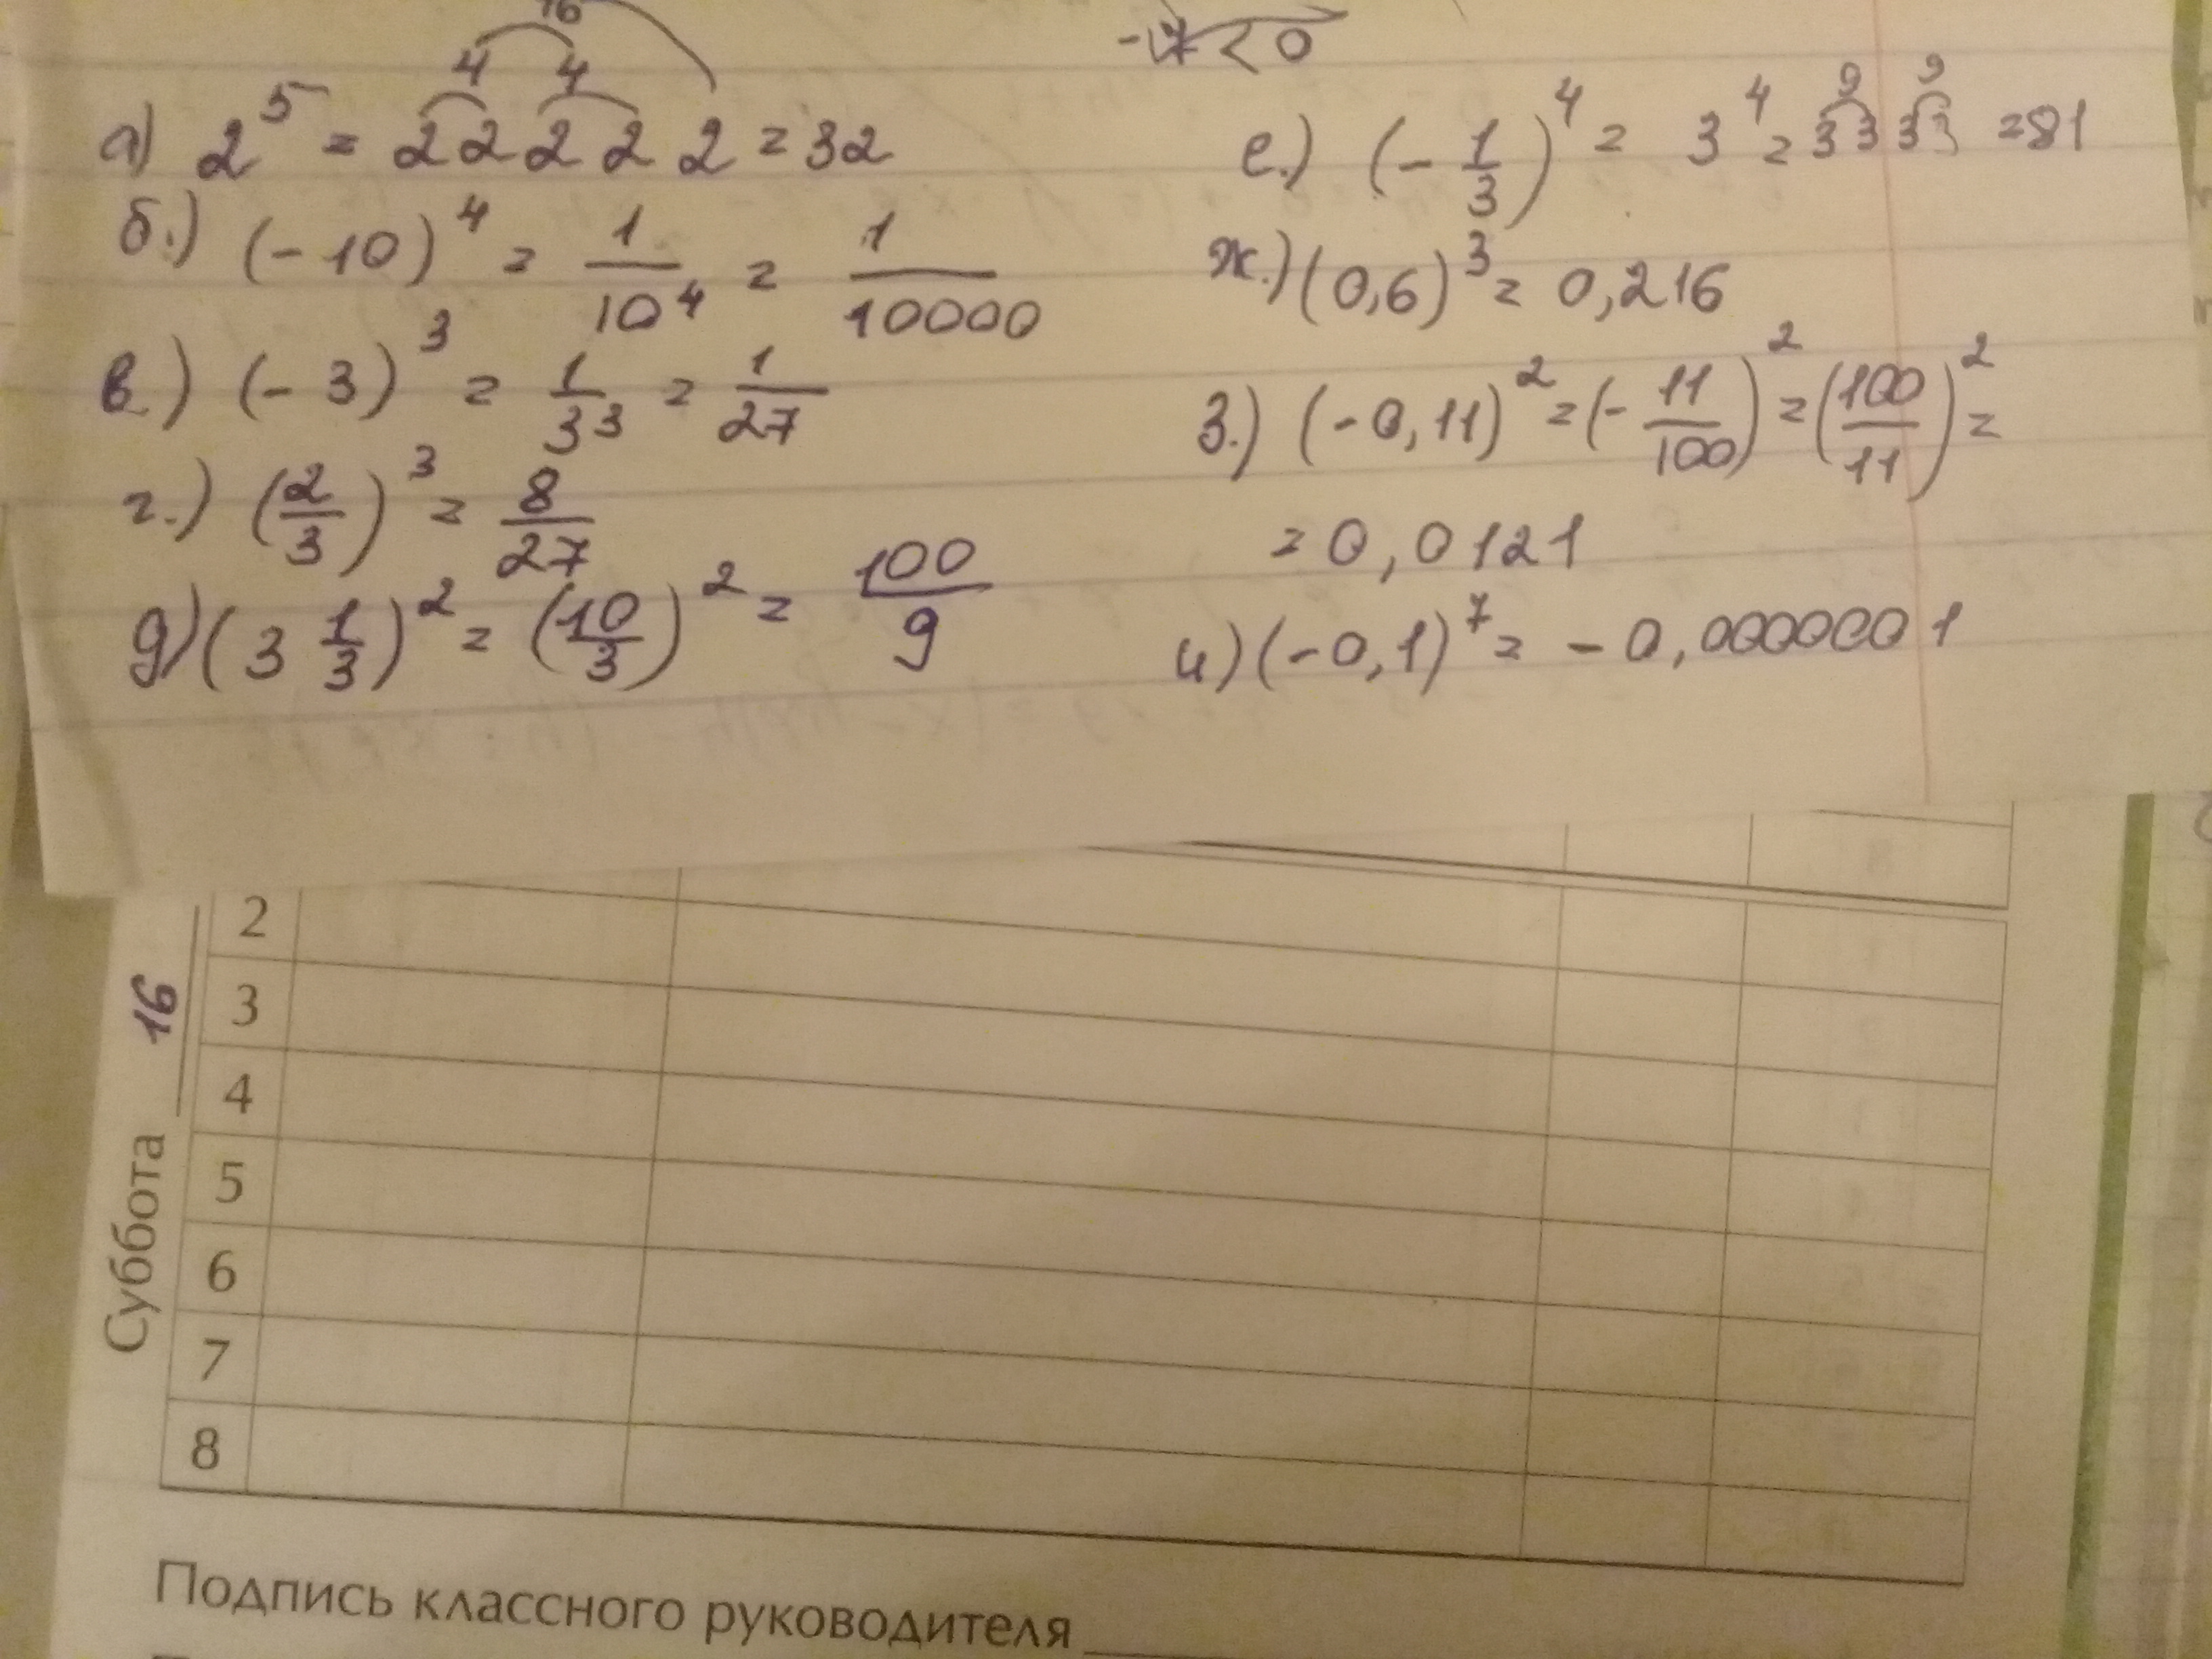 16
4 4
а) 2⁵ = 2 2 2 2 2 = 32
б.) (-10)⁴ = 1/10⁴ = 1/10000
в.) (-3)³ = 1/3³ = 1/27
г.) (2/3)³ = 8/27
д) (3 1/3)² = (10/3)² = 100/9
< 0
9 9
е.) (-1/3)⁴ = 3⁴ = 3 3 3 3 = 81
ж.) (0,6)³ = 0,216
з.) (-0,11)² = (-11/100)² = (100/11)² =
= 0,0121
и) (-0,1)⁷ = -0,0000001
Суббота 16
2
3
4
5
6
7
8
Подпись классного руководителя